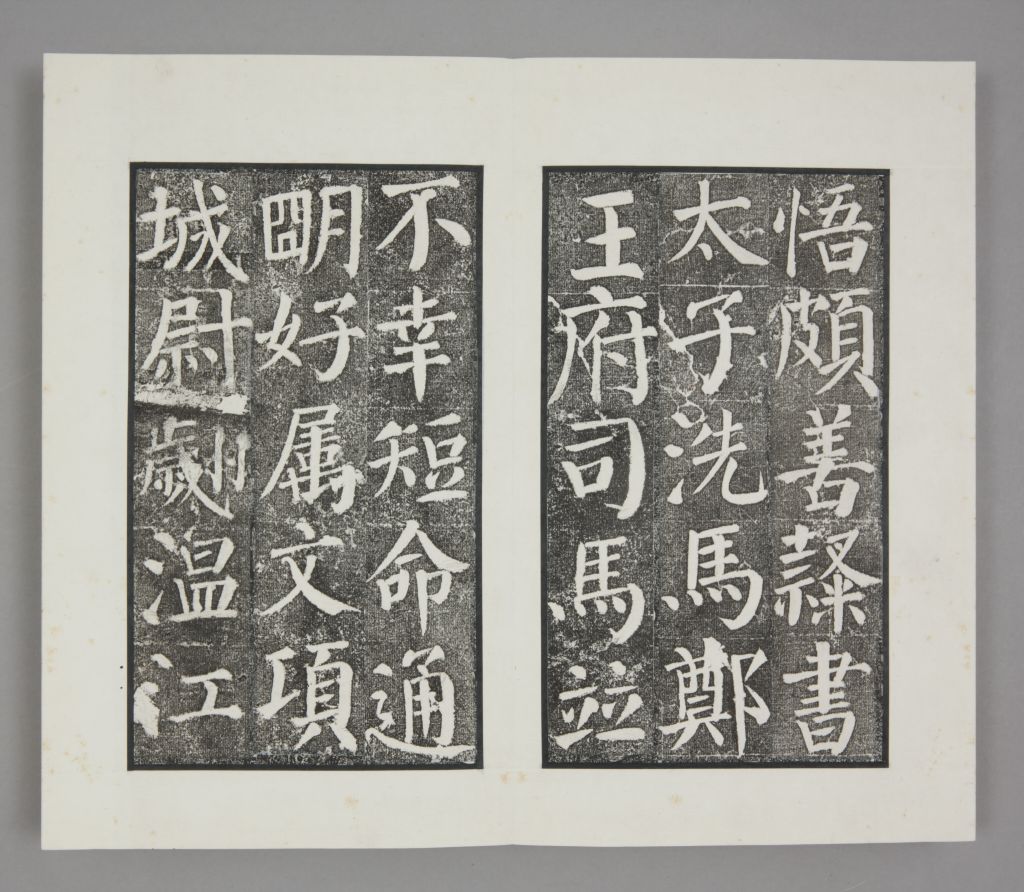 悟頗善隸書
太子洗馬鄭
王府司馬竝
不幸短命通
明好属文項
城尉翽温江